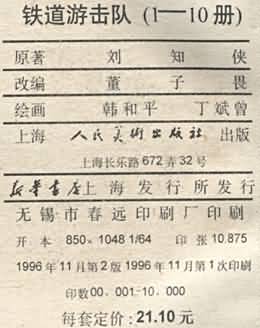 铁道游击队(1—10册)
原著 刘知侠
改编 董子畏
绘画 韩和平 丁斌曾
上海人民美術出版社出版
上海长乐路672弄32号
新华书店上海发行所发行
无锡市春远印刷厂印刷
开本 850×1048 1/64 印张 10.875
1996年11月第2版 1996年11月第1次印刷
印数00.001-10.000
每套定价:21.10元